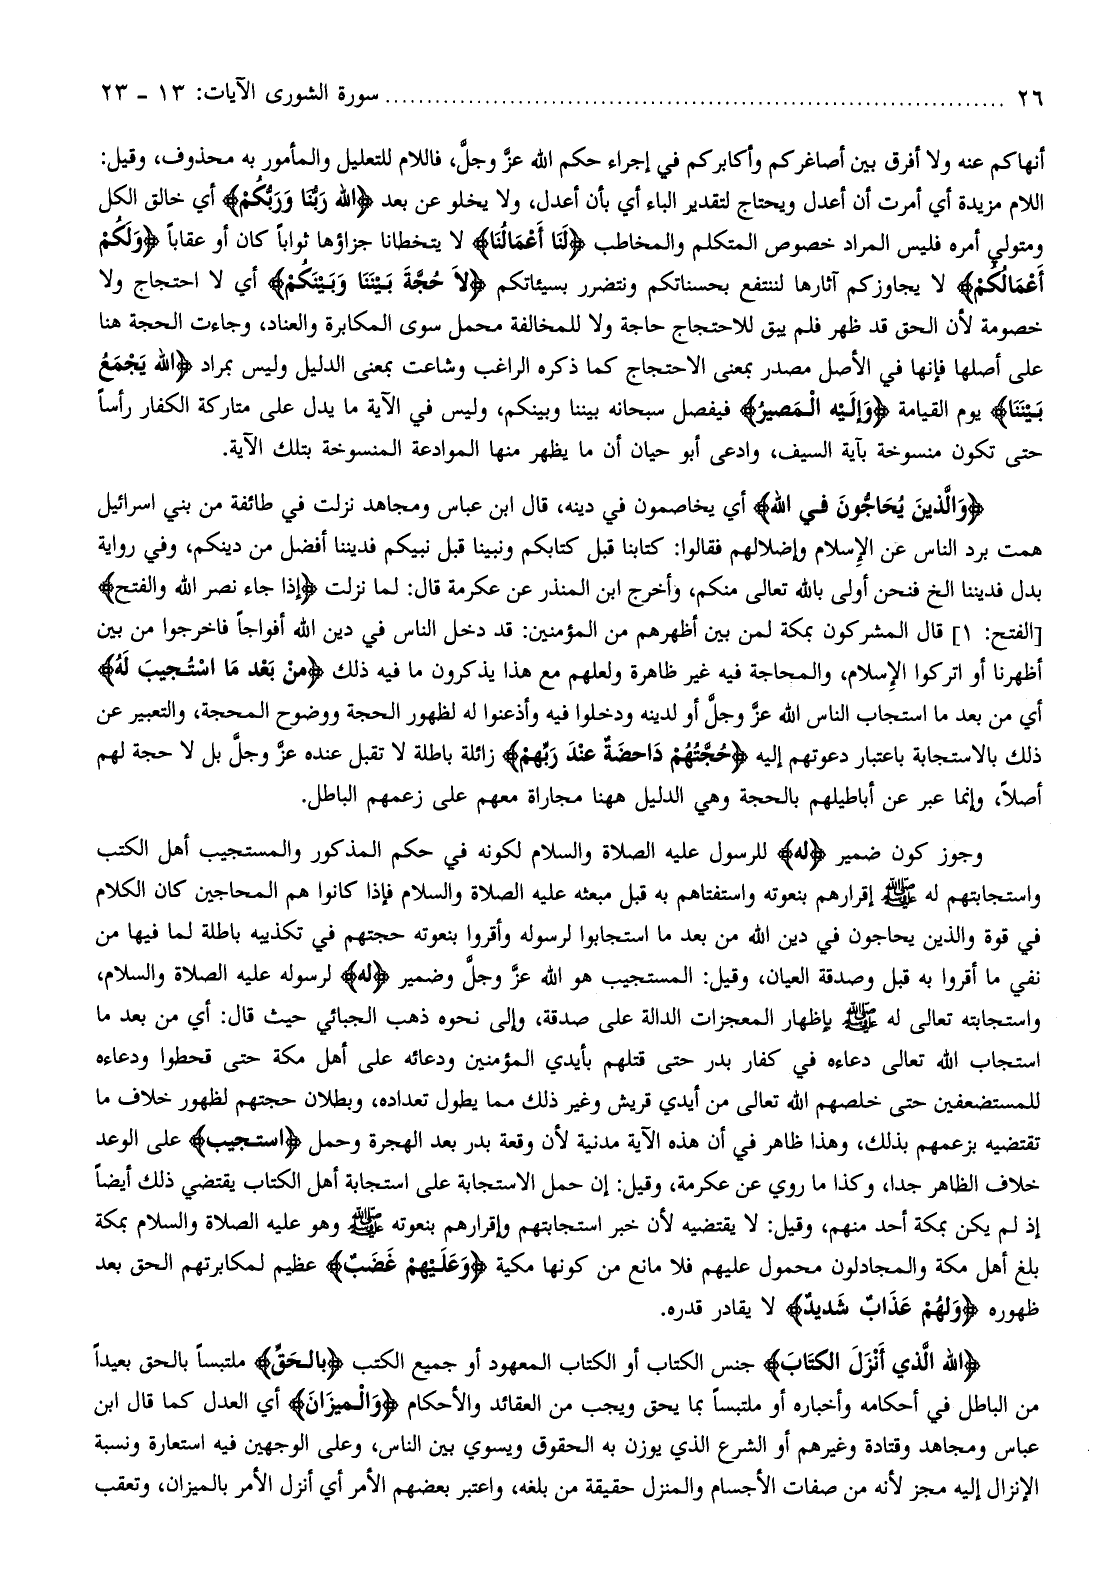 ٢٦ ........................................ سورة الشورى الآيات: ١٣ - ٢٣
أنهاكم عنه ولا أفرق بين أصاغركم وأكابركم في إجراء حكم الله عزَّ وجلَّ، فاللام للتعليل والمأمور به محذوف، وقيل:
اللام مزيدة أي أمرت أن أعدل ويحتاج لتقدير الباء أي بأن أعدل، ولا يخلو عن بعد ﴿الله رَبُّنَا وَرَبُّكُمْ﴾ أي خالق الكل
ومتولي أمره فليس المراد خصوص المتكلم والمخاطب ﴿لَنَا أَعْمَالُنَا﴾ لا يتخطانا جزاؤها ثواباً كان أو عقاباً ﴿وَلَكُمْ
أَعْمَالُكُمْ﴾ لا يجاوزكم آثارها لننتفع بحسناتكم ونتضرر بسيئاتكم ﴿لاَ حُجَّةَ بَيْنَنَا وَبَيْنَكُمْ﴾ أي لا احتجاج ولا
خصومة لأن الحق قد ظهر فلم يبق للاحتجاج حاجة ولا للمخالفة محمل سوى المكابرة والعناد، وجاءت الحجة هنا
على أصلها فإنها في الأصل مصدر بمعنى الاحتجاج كما ذكره الراغب وشاعت بمعنى الدليل وليس بمراد ﴿الله يَجْمَعُ
بَيْنَنَا﴾ يوم القيامة ﴿وَإِلَيْه الْمَصيرُ﴾ فيفصل سبحانه بيننا وبينكم، وليس في الآية ما يدل على متاركة الكفار رأساً
حتى تكون منسوخة بآية السيف، وادعى أبو حيان أن ما يظهر منها الموادعة المنسوخة بتلك الآية.
﴿وَالَّذينَ يُحَاجُّونَ في الله﴾ أي يخاصمون في دينه، قال ابن عباس ومجاهد نزلت في طائفة من بني اسرائيل
همت برد الناس عن الإسلام وإضلالهم فقالوا: كتابنا قبل كتابكم ونبينا قبل نبيكم فديننا أفضل من دينكم، وفي رواية
بدل فديننا الخ فنحن أولى بالله تعالى منكم، وأخرج ابن المنذر عن عكرمة قال: لما نزلت ﴿إذا جاء نصر الله والفتح﴾
[الفتح: ١] قال المشركون بمكة لمن بين أظهرهم من المؤمنين: قد دخل الناس في دين الله أفواجاً فاخرجوا من بين
أظهرنا أو اتركوا الإسلام، والمحاجة فيه غير ظاهرة ولعلهم مع هذا يذكرون ما فيه ذلك ﴿منْ بَعْد مَا اسْتُجيبَ لَهُ﴾
أي من بعد ما استجاب الناس الله عزَّ وجلَّ أو لدينه ودخلوا فيه وأذعنوا له لظهور الحجة ووضوح المحجة، والتعبير عن
ذلك بالاستجابة باعتبار دعوتهم إليه ﴿حُجَّتُهُمْ دَاحضَةٌ عنْدَ رَبِّهمْ﴾ زائلة باطلة لا تقبل عنده عزَّ وجلَّ بل لا حجة لهم
أصلاً، وإنما عبر عن أباطيلهم بالحجة وهي الدليل ههنا مجاراة معهم على زعمهم الباطل.
وجوز كون ضمير ﴿له﴾ للرسول عليه الصلاة والسلام لكونه في حكم المذكور والمستجيب أهل الكتب
واستجابتهم له ﷺ إقرارهم بنعوته واستفتاهم به قبل مبعثه عليه الصلاة والسلام فإذا كانوا هم المحاجين كان الكلام
في قوة والذين يحاجون في دين الله من بعد ما استجابوا لرسوله وأقروا بنعوته حجتهم في تكذيبه باطلة لما فيها من
نفي ما أقروا به قبل وصدقة العيان، وقيل: المستجيب هو الله عزَّ وجلَّ وضمير ﴿له﴾ لرسوله عليه الصلاة والسلام،
واستجابته تعالى له ﷺ بإظهار المعجزات الدالة على صدقة، وإلى نحوه ذهب الجبائي حيث قال: أي من بعد ما
استجاب الله تعالى دعاءه في كفار بدر حتى قتلهم بأيدي المؤمنين ودعائه على أهل مكة حتى قحطوا ودعاءه
للمستضعفين حتى خلصهم الله تعالى من أيدي قريش وغير ذلك مما يطول تعداده، وبطلان حجتهم لظهور خلاف ما
تقتضيه بزعمهم بذلك، وهذا ظاهر في أن هذه الآية مدنية لأن وقعة بدر بعد الهجرة وحمل ﴿استجيب﴾ على الوعد
خلاف الظاهر جدا، وكذا ما روي عن عكرمة، وقيل: إن حمل الاستجابة على استجابة أهل الكتاب يقتضي ذلك أيضاً
إذ لم يكن بمكة أحد منهم، وقيل: لا يقتضيه لأن خبر استجابتهم وإقرارهم بنعوته ﷺ وهو عليه الصلاة والسلام بمكة
بلغ أهل مكة والمجادلون محمول عليهم فلا مانع من كونها مكية ﴿وَعَلَيْهمْ غَضَبٌ﴾ عظيم لمكابرتهم الحق بعد
ظهوره ﴿وَلهُمْ عَذَابٌ شَديدٌ﴾ لا يقادر قدره.
﴿الله الَّذي أَنْزَلَ الكتَابَ﴾ جنس الكتاب أو الكتاب المعهود أو جميع الكتب ﴿بالحَقِّ﴾ ملتبساً بالحق بعيداً
من الباطل في أحكامه وأخباره أو ملتبساً بما يحق ويجب من العقائد والأحكام ﴿وَالْميزَانَ﴾ أي العدل كما قال ابن
عباس ومجاهد وقتادة وغيرهم أو الشرع الذي يوزن به الحقوق ويسوي بين الناس، وعلى الوجهين فيه استعارة ونسبة
الإنزال إليه مجز لأنه من صفات الأجسام والمنزل حقيقة من بلغه، واعتبر بعضهم الأمر أي أنزل الأمر بالميزان، وتعقب